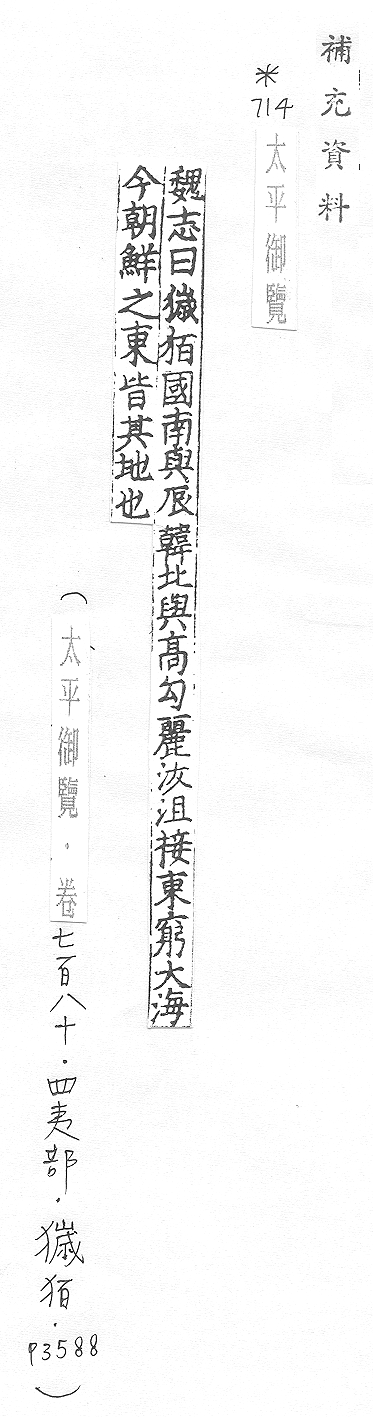 補充資料
*
714
太平御覽
魏志曰獩貊國南與辰韓北與高勾麗沃沮接東窮大海
今朝鮮之東皆其地也
(太平御覽·卷七百八十·四夷部·獩貊·P3588)